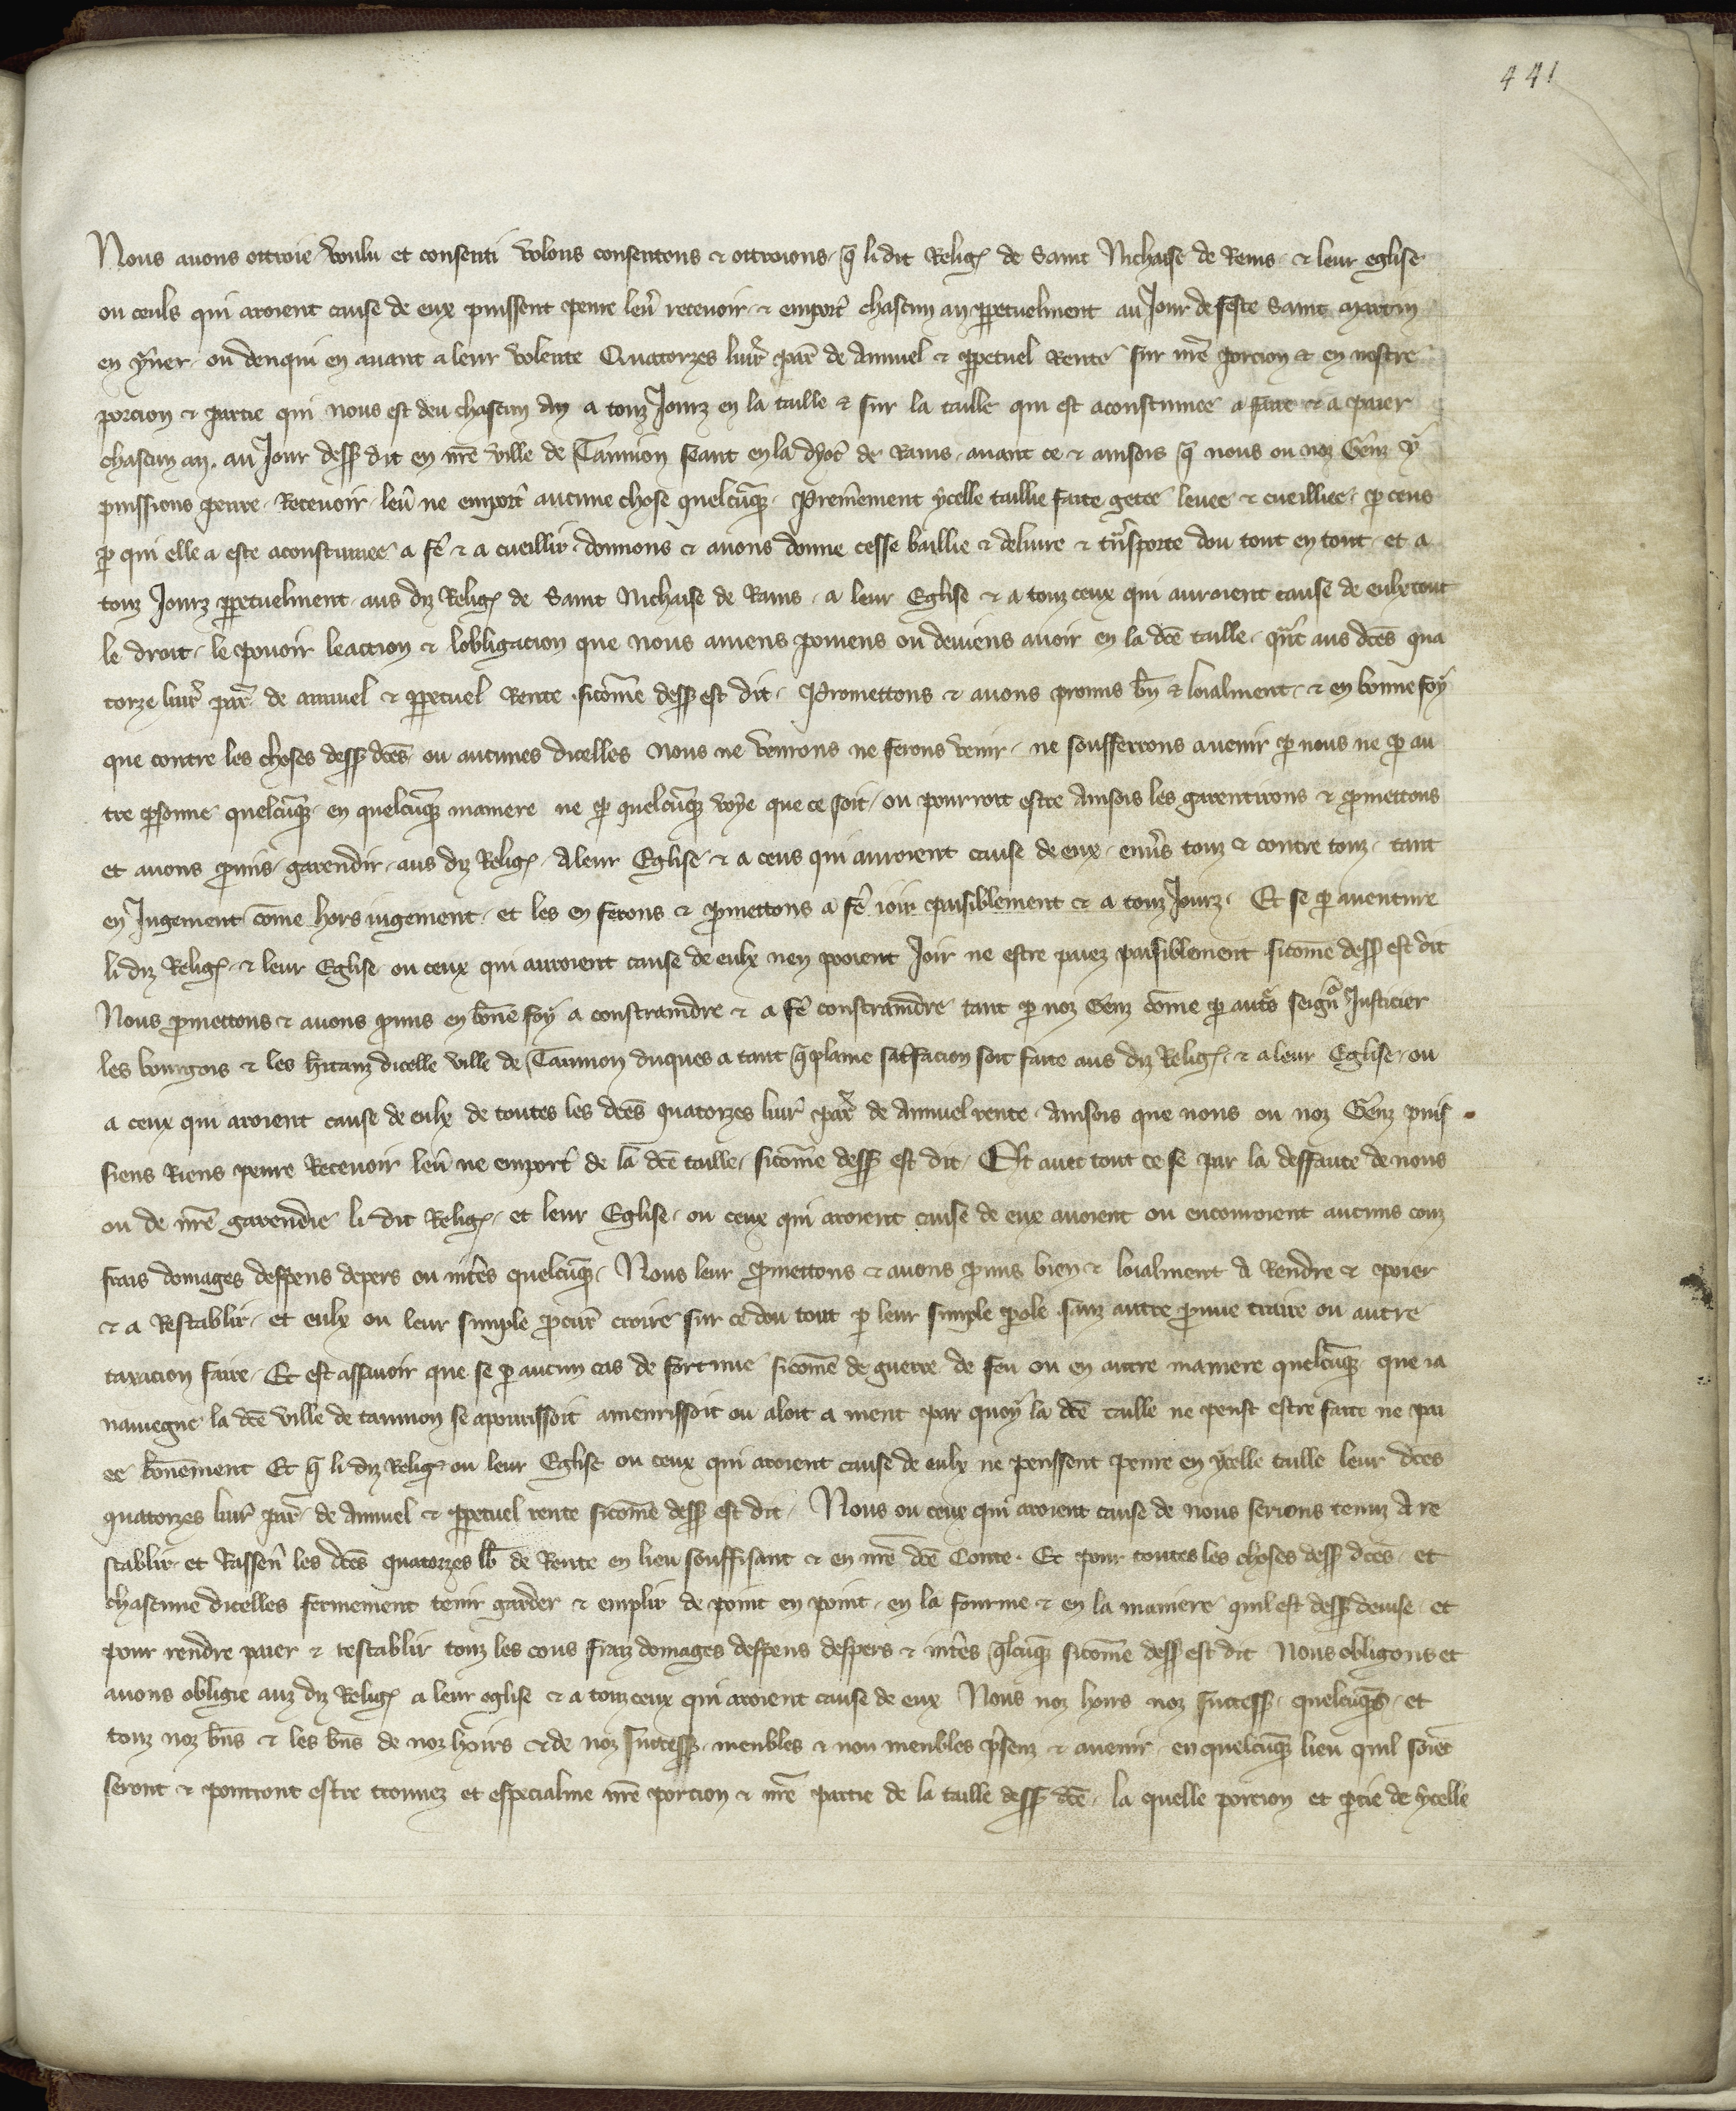 441
Nous auons ottroie voulu et consenti volons consentons & ottroions q̄ li dit Relig᷒ de Saint Nichaise de Rems & leur eglise
ou ceuls qui aroient cause de eux puissent penre leu᷒ receuoir & emport᷒ chascun an ꝑpetuelment au Jour de feste Saint Martin
en yu᷒er ou denqui en auant a leur volente Quatorzes liur᷒ par᷒ de Annuel & ꝑpetuel Rente sur nr̄e porcion & en nostre
porcion & partie qui nous est deu chascun An a touz Jourz en la taille & sur la taille qui est acoustumee a faire & a paier
chascun an. au Jour dess᷒ dit en nr̄e ville de Tannion seant en la dyoc᷒ de Rains auant ce & ainsois q̄ nous ou noz Genz y
puissions penre Receuoir leu᷒ ne emport᷒ aucune chose quelcūq᷒ Premie᷒ment ycelle taillie faite getee leuee & cueilliee ꝑ ceus
ꝑ qui elle a este acoustumee a fē & a cueillir donnons & auons donne cesse baillie & deliure & tn᷒sporte dou tout en tout et a
touz Jourz ꝑpetuelment aus diz Relig᷒ de Saint Nichaise de Rains a leur Eglise & a touz ceux qui auroient cause de eulx tout
le droit le pouoir leaction & lobligacion que nous auiens pouiens ou deuiens auoir en la dcē taille qn̄t aus dcēs qua
torze liur᷒ par᷒ de annuel & ꝑpetuel Rente sicōme dess᷒ est dit Promettons & auons promis bn̄ & loialment & en bonne foy
que contre les choses dess᷒ dcēs ou aucunes dicelles Nous ne venrons ne ferons venir ne soufferrons a venir ꝑ nous ne ꝑ au
tre ꝑsonne quelcūq᷒ en quelcūq᷒ maniere ne ꝑ quelcūq᷒ voye que ce soit ou pourroit estre Ainsois les garentirons & ꝓmettons
et auons ꝓmis garendir aus diz Relig᷒ A leur Eglise & a ceus qui auroient cause de eux enu᷒s touz & contre touz tant
en Jugement cōme hors iugement et les en ferons & ꝓmettons a fē ioir paisiblement & a touz Jourz Et se ꝑ auenture
li diz Relig᷒ & leur Eglise ou ceux qui auroient cause de eulx nen pooient Joir ne estre paiez paisiblement sicōme dess᷒ est dit
Nous ꝓmettons & auons ꝓmis en bōne foy a constraindre & a fē constraindre tant ꝑ noz Genz cōme ꝑ aut᷒s seign᷒ Justicier
les bourgois & les hitanz dicelle ville de Tannion duques a tant q̄ plaine satisfacion soit faite aus diz Relig᷒ & a leur Eglise ou
a ceux qui aroient cause de eulx de toutes les dcēs quatorzes liur᷒ par᷒ de Annuel rente Ainsois que nous ou noz Genz puis
siens Riens penre Receuoir leu᷒ ne emport᷒ de la dcē taille sicōme dess᷒ est dit Et auec tout ce se par la deffaute de nous
ou de nr̄e garendie li dit Relig᷒ et leur Eglise ou ceux qui aroient cause de eux auoient ou encouroient aucuns couz
frais domages despens depers ou int᷒es quelcūq᷒ Nous leur ꝓmettons & auons ꝓmis bien & loialment A Rendre & poier
& a Restablir et eulx ou leur simple ꝓcur᷒ croire sur ce dou tout ꝑ leur simple ꝑole sanz autre ꝓuue traire ou autre
taxacion faire Et est assauoir que se ꝑ aucun cas de fortune sicōme de guerre de feu ou en autre maniere quelcūq᷒ que ia
nauiegne la dcē ville de tannion se apourissoit amenrissoit ou aloit a nient par quoy la dcē taille ne peust estre faite ne pai
ee bōnement Et q̄ li diz Relig᷒ ou leur Eglise ou ceux qui aroient cause de eulx ne peussent penre en ycelle taille leur dcēs
quatorzes liur᷒ par᷒ de Annuel & ꝑpetuel rente sicōme dess᷒ est dit Nous ou ceux qui aroient cause de nous serions tenuz A re
stablir et Rassen᷒ les dcēs quatorzes lb̄ de Rente en lieu souffisant & en nr̄e dcē Conte Et pour toutes les choses dess᷒ dcēs et
chascune dicelles fermement tenir garder & emplir de point en point en la fourme & en la maniere quil est dess᷒ deuise et
pour rendre paier & restablir touz les cous fraiz domages despens despers & int᷒es q̄lcūq᷒ sicōme dess᷒ est dit Nous obligons et
auons obligie auz diz Relig᷒ a leur eglise & a touz ceux qui aroient cause de eux Nous noz hoirs noz success᷒ quelcūq᷒s et
touz noz bn̄s & les bn̄s de noz hoirs & de noz success᷒ meubles & non meubles p᷒senz & auenir en quelcūq᷒ lieu quil soiēt
seront & pourront estre trouuez et especialme nr̄e porcion & nr̄e partie de la taille dess᷒ dcē la quelle porcion et ꝑtie de ycelle